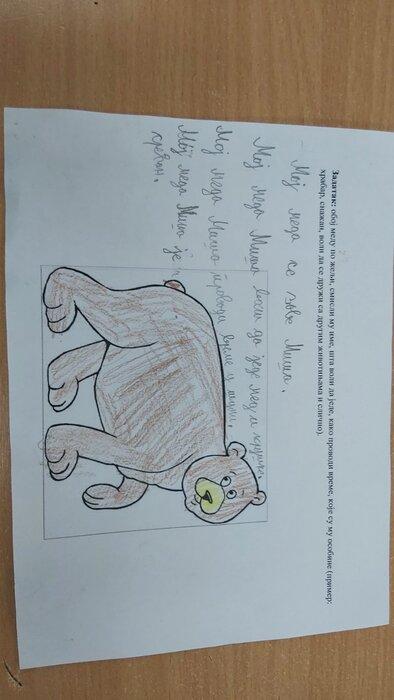 Задатак: обој меду по жељи, смисли му име, шта воли да једе, како проводи време, које су му особине (пример:
храбар, снажан, воли да се дружи са другим животинама и слично).
Мој меда се зове Миша.
Мој меда Миша воли да једе мед и крушке.
Мој меда Миша проводи време у шуми.
Мој меда Миша је